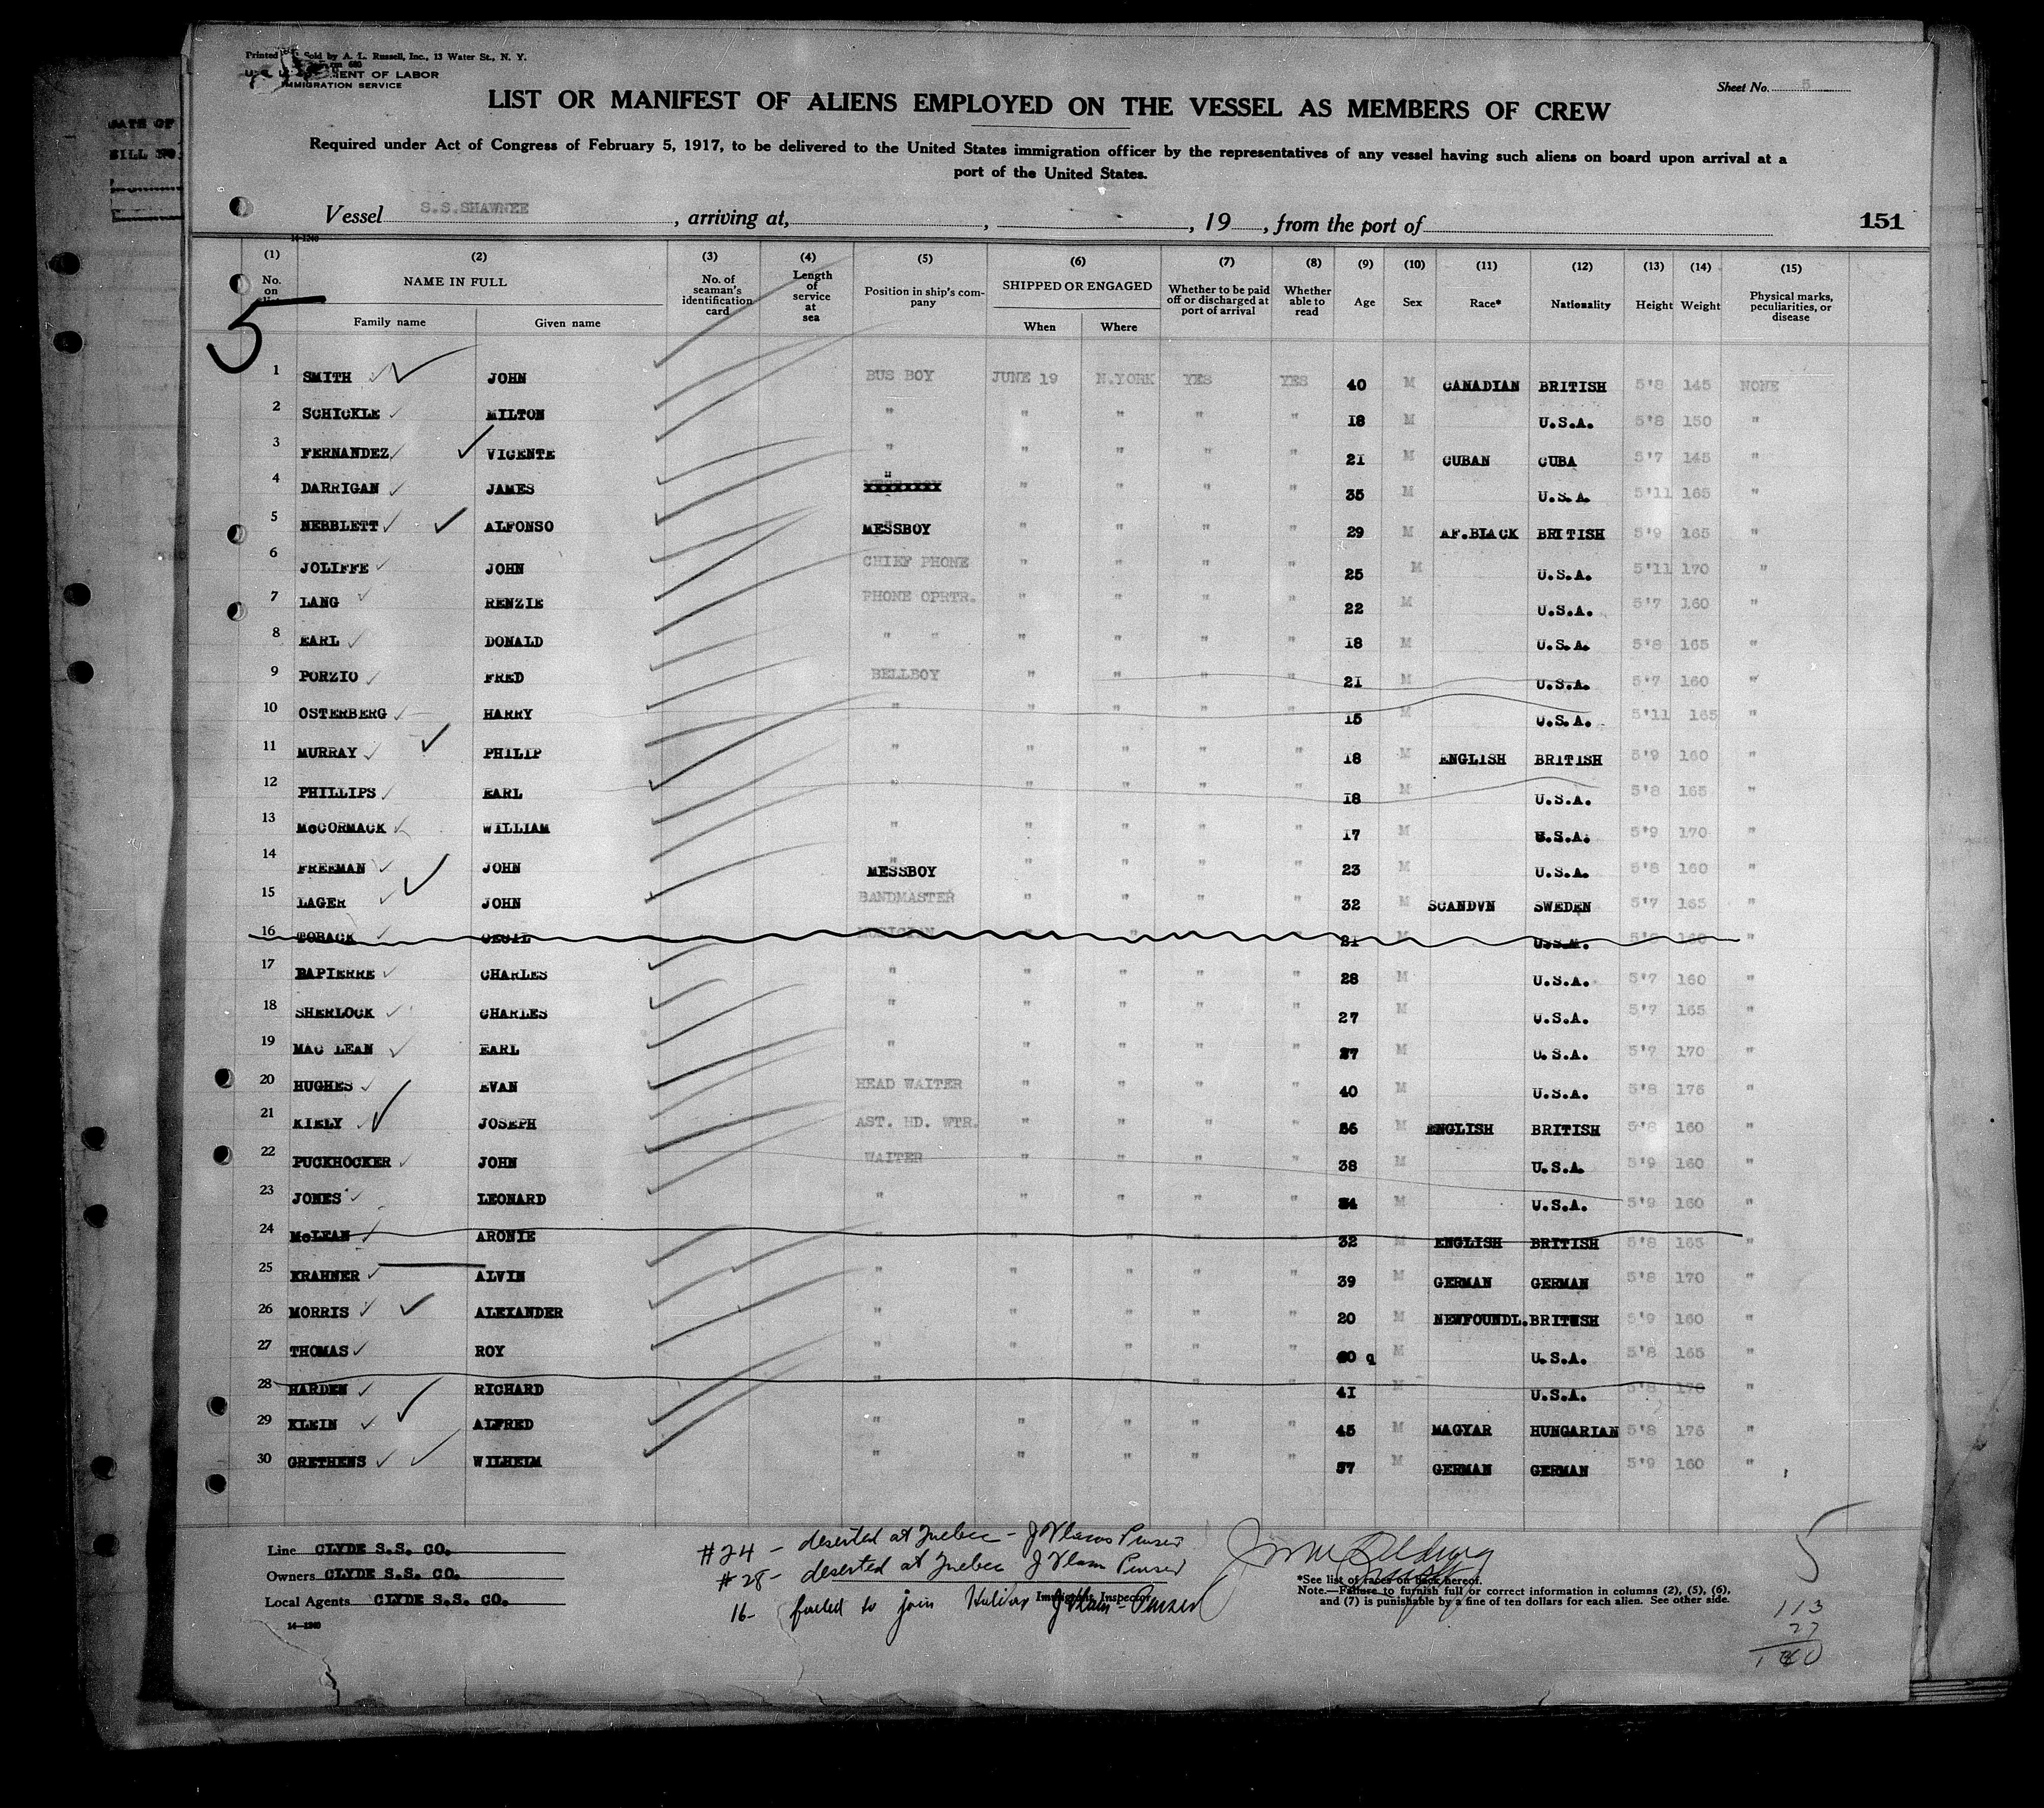 DATE OF
BILL NO.
Printed Sold by A. L. Russell, Inc., 13 Water St., N. Y.
OF LABOR
IMMIGRATION SERVICE
Sheet No. 5
LIST OR MANIFEST OF ALIENS EMPLOYED ON THE VESSEL AS MEMBERS OF CREW
Required under Act of Congress of February 5, 1917, to be delivered to the United States immigration officer by the representatives of any vessel having such aliens on board upon arrival at a
port of the United States.
Vessel S.S.SHAWNEE, arriving at, , , 19 , from the port of
151
14-1240
(1) (2) (3) (4) (5) (6) (7) (8) (9) (10) (11) (12) (13) (14) (15)
No. on list NAME IN FULL Family name Given name No. of seaman's identification card Length of service at sea Position in ship's company SHIPPED OR ENGAGED When Where Whether to be paid off or discharged at port of arrival Whether able to read Age Sex Race* Nationality Height Weight Physical marks, peculiarities, or disease
5
1 SMITH JOHN BUS BOY JUNE 19 N.YORK YES YES 40 M CANADIAN BRITISH 5'8 145 NONE
2 SCHICKLE MILTON " " " " " 18 M U.S.A. 5'8 150 "
3 FERNANDEZ VICENTE " " " " " 21 M CUBAN CUBA 5'7 145 "
4 DARRIGAN JAMES " " " " " 35 M U.S.A. 5'11 165 "
5 NEBBLETT ALFONSO MESSBOY " " " " 29 M AF.BLACK BRITISH 5'9 165 "
6 JOLIFFE JOHN CHIEF PHONE " " " " 25 M U.S.A. 5'11 170 "
7 LANG RENZIE PHONE OPRTR. " " " " 22 M U.S.A. 5'7 160 "
8 EARL DONALD " " " " " " 18 M U.S.A. 5'8 165 "
9 PORZIO FRED BELLBOY " " " " 21 M U.S.A. 5'7 160 "
10 OSTERBERG HARRY " " " " " 15 M U.S.A. 5'11 165 "
11 MURRAY PHILIP " " " " " 18 M ENGLISH BRITISH 5'9 160 "
12 PHILLIPS EARL " " " " " 18 M U.S.A. 5'8 165 "
13 McCORMACK WILLIAM " " " " " 17 M U.S.A. 5'9 170 "
14 FREEMAN JOHN MESSBOY " " " " 23 M U.S.A. 5'8 160 "
15 LAGER JOHN BANDMASTER " " " " 32 M SCANDVN SWEDEN 5'7 165 "
16 TOBACK CECIL MUSICIAN " " " " 21 M U.S.A. 160 "
17 BAPIERRE CHARLES " " " " " 28 M U.S.A. 5'7 160 "
18 SHERLOCK CHARLES " " " " " 27 M U.S.A. 5'7 165 "
19 MAC LEAN EARL " " " " " 37 M U.S.A. 5'7 170 "
20 HUGHES EVAN HEAD WAITER " " " " 40 M U.S.A. 5'8 175 "
21 KIELY JOSEPH AST. HD. WTR. " " " " 36 M ENGLISH BRITISH 5'8 160 "
22 PUCKHOCKER JOHN WAITER " " " " 38 M U.S.A. 5'9 160 "
23 JONES LEONARD " " " " " 34 M U.S.A. 5'9 160 "
24 McLEAN ARONIE " " " " " 32 M ENGLISH BRITISH 5'8 165 "
25 KRAHNER ALVIN " " " " " 39 M GERMAN GERMAN 5'8 170 "
26 MORRIS ALEXANDER " " " " " 20 M NEWFOUNDL. BRITISH 5'9 160 "
27 THOMAS ROY " " " " " M U.S.A. 5'8 165 "
28 HARDEN RICHARD " " " " " 41 M U.S.A. 5'8 170 "
29 KLEIN ALFRED " " " " " 45 M MAGYAR HUNGARIAN 5'8 175 "
30 GRETHENS WILHELM " " " " " 37 M GERMAN GERMAN 5'9 160 "
Line CLYDE S.S. CO.
Owners CLYDE S.S. CO.
Local Agents CLYDE S.S. CO.
14-1240
#24 - deserted at Quebec - Purser
#28 - deserted at Quebec Purser
16- failed to join Halifax Purser
Immigrant Inspector
*See list of races on back hereof.
Note.—Failure to furnish full or correct information in columns (2), (5), (6),
and (7) is punishable by a fine of ten dollars for each alien. See other side.
5
113
27
140